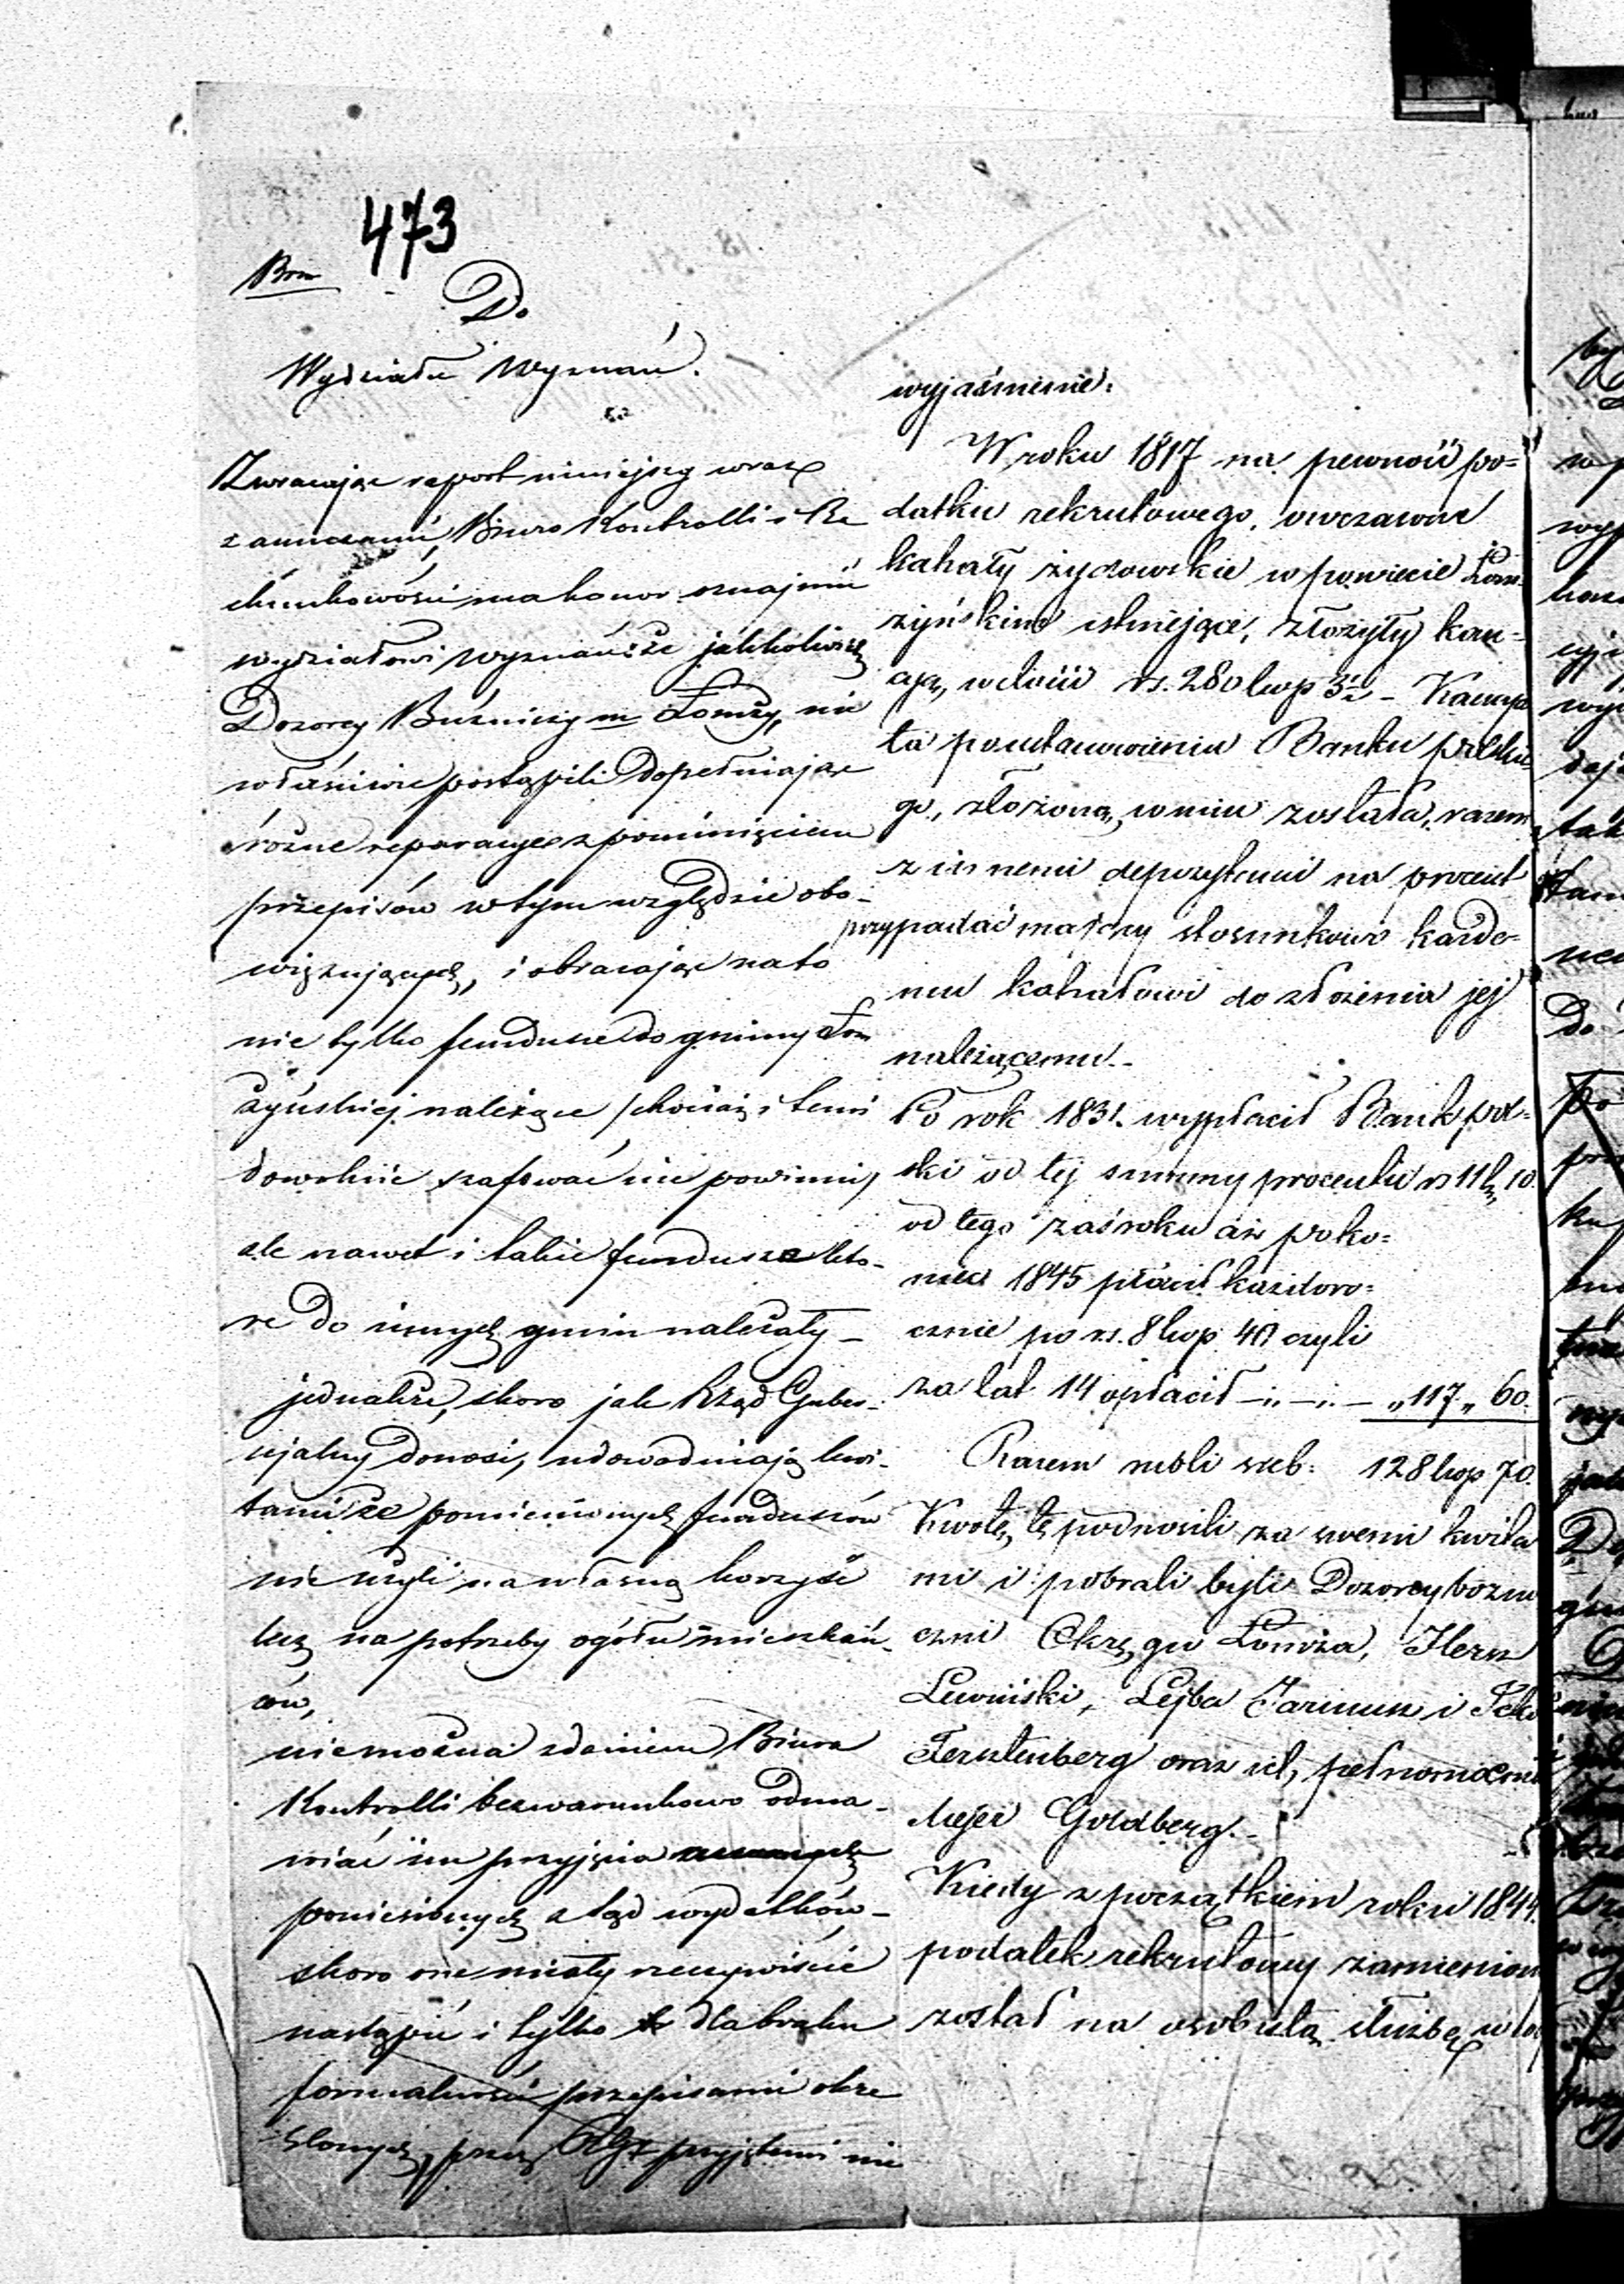 473
Do
Wydziału Wyznań.
Zwracając raport niniejszy wraz
z annexami, Biuro Kontrolli i Ra
chunkowości ma honor oznajmić
wydziałowi wyznań że jakkolwiek
Dozorcy Bużniczy m Łomży, nie
właściwie postąpili dopełniając
różne reparacye z pominięciem
przepisów w tym względzie obo-
wiązujących, i obracając na to
nie tylko fundusze do gminy Łom
żyńskiej należące /chociaż i temi
dowolnie szafować nie powinni/
ale nawet i takie fundusze kto-
re do innych gmin należały -
jednakże, skoro jak Rząd Guber-
njalny donosi, udowadniają kwi-
tami że pomienionych funduszów
nie użyli na własną korzyść
lecz na potrzeby ogółu mieszkań-
ców,
niemożna zdaniem Biura
Kontrolli bezwarunkowo odma-
wiać im przyjęcia
poniesionych ztąd wydatków -
skoro one miały rzeczywiście
nastąpić i tylko dla braku
formalności przepisami okre
ślonych, przez przyjętemi nie
wyjaśnienie:
W roku 1817 na pewność po=
datku rekrutowego, owczasowe
kahały żydowskie w powiecie Łom=
żyńskim istniejące, złożyły kau=
cją, w ilości rs. 280 kop 3½ - Kaucya
ta po ustanowieniu Banku polskie
go, złożoną w nim została, razem
z innemi depozytami na procent
przypadać mający stosunkowo każde-
mu kahałowi do złożenia jej
należącemu. -
Po rok 1831. wypłacił Bank pol=
ski od tej summy procentu rs 11 k. 10.
od tego zaś roku aż po ko=
niec 1845 płacił każdoro=
cznie po rs. 8 kop. 40 czyli
za lat 14 opłacił -:-:- „117 „ 60.
Razem rubli sreb: 128 kop 70.
Kwotę tę podnosili za swemi kwita
mi i pobrali byli Dozorcy bożni
czni Okręgu Łomża, Hersz
Lewiński, Lejba Jarmusz i Icko
Fersztenberg oraz ich pełnomocnik
Mejer Goldberg. -
Kiedy z początkiem roku 1844.
podatek rekrutowy zamieniony
został na osobistą służbę w